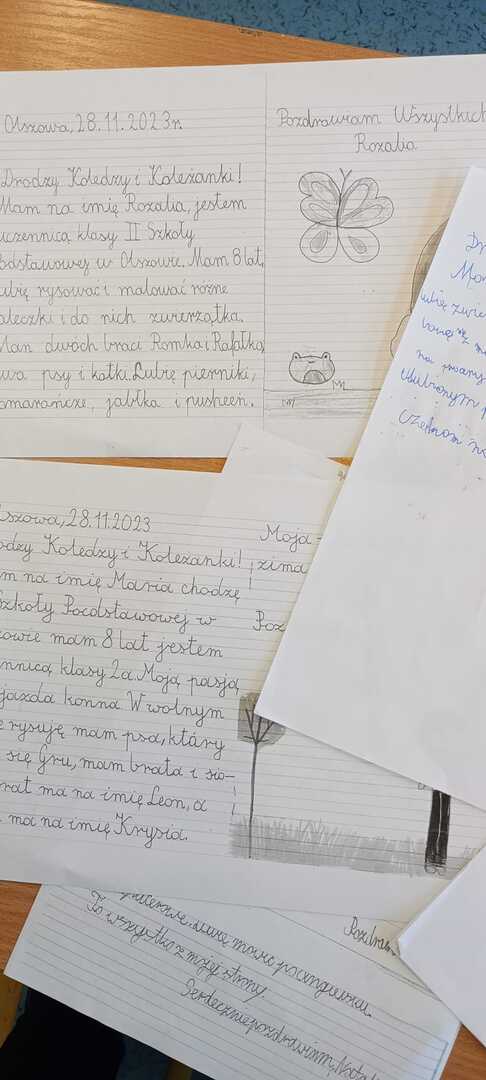 Olszowa, 28.11.2023r.
Drodzy Koledzy i Koleżanki!
Mam na imię Rozalia, jestem
uczennicą klasy II Szkoły
Podstawowej w Olszowie. Mam 8 lat.
Lubię rysować i malować różne
laleczki i do nich zwierzątka.
Mam dwóch braci Romka i Rafałka,
dwa psy i kotki. Lubię pierniki,
pomarańcze, jabłka i pusheen.
Pozdrawiam Wszystkich
Rozalia
Dr
Mam
lubię zwie
na
ulubionym
Olszowa, 28.11.2023
Drodzy Koledzy i Koleżanki!
Mam na imię Maria chodzę
Szkoły Pocdstawowej w
Olszowie mam 8 lat jestem
uczennicą klasy 2a. Moją pasją
jazda konna W wolnym
rysuję mam psa, który
się Gru, mam brata i sio-
brat ma na imię Leon, a
ma na imię Krysia.
Moja
zima
Poz
To wszystko z mojej strony.
Serdecznie pozdrawiam, Nata
Pozdraw